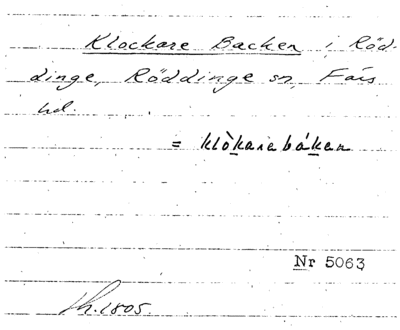 Klockare Backen i Röd-
dinge, Röddinge sn, Färs
hd.
= klòkarebáken
Nr 5063
Sk. 1805.